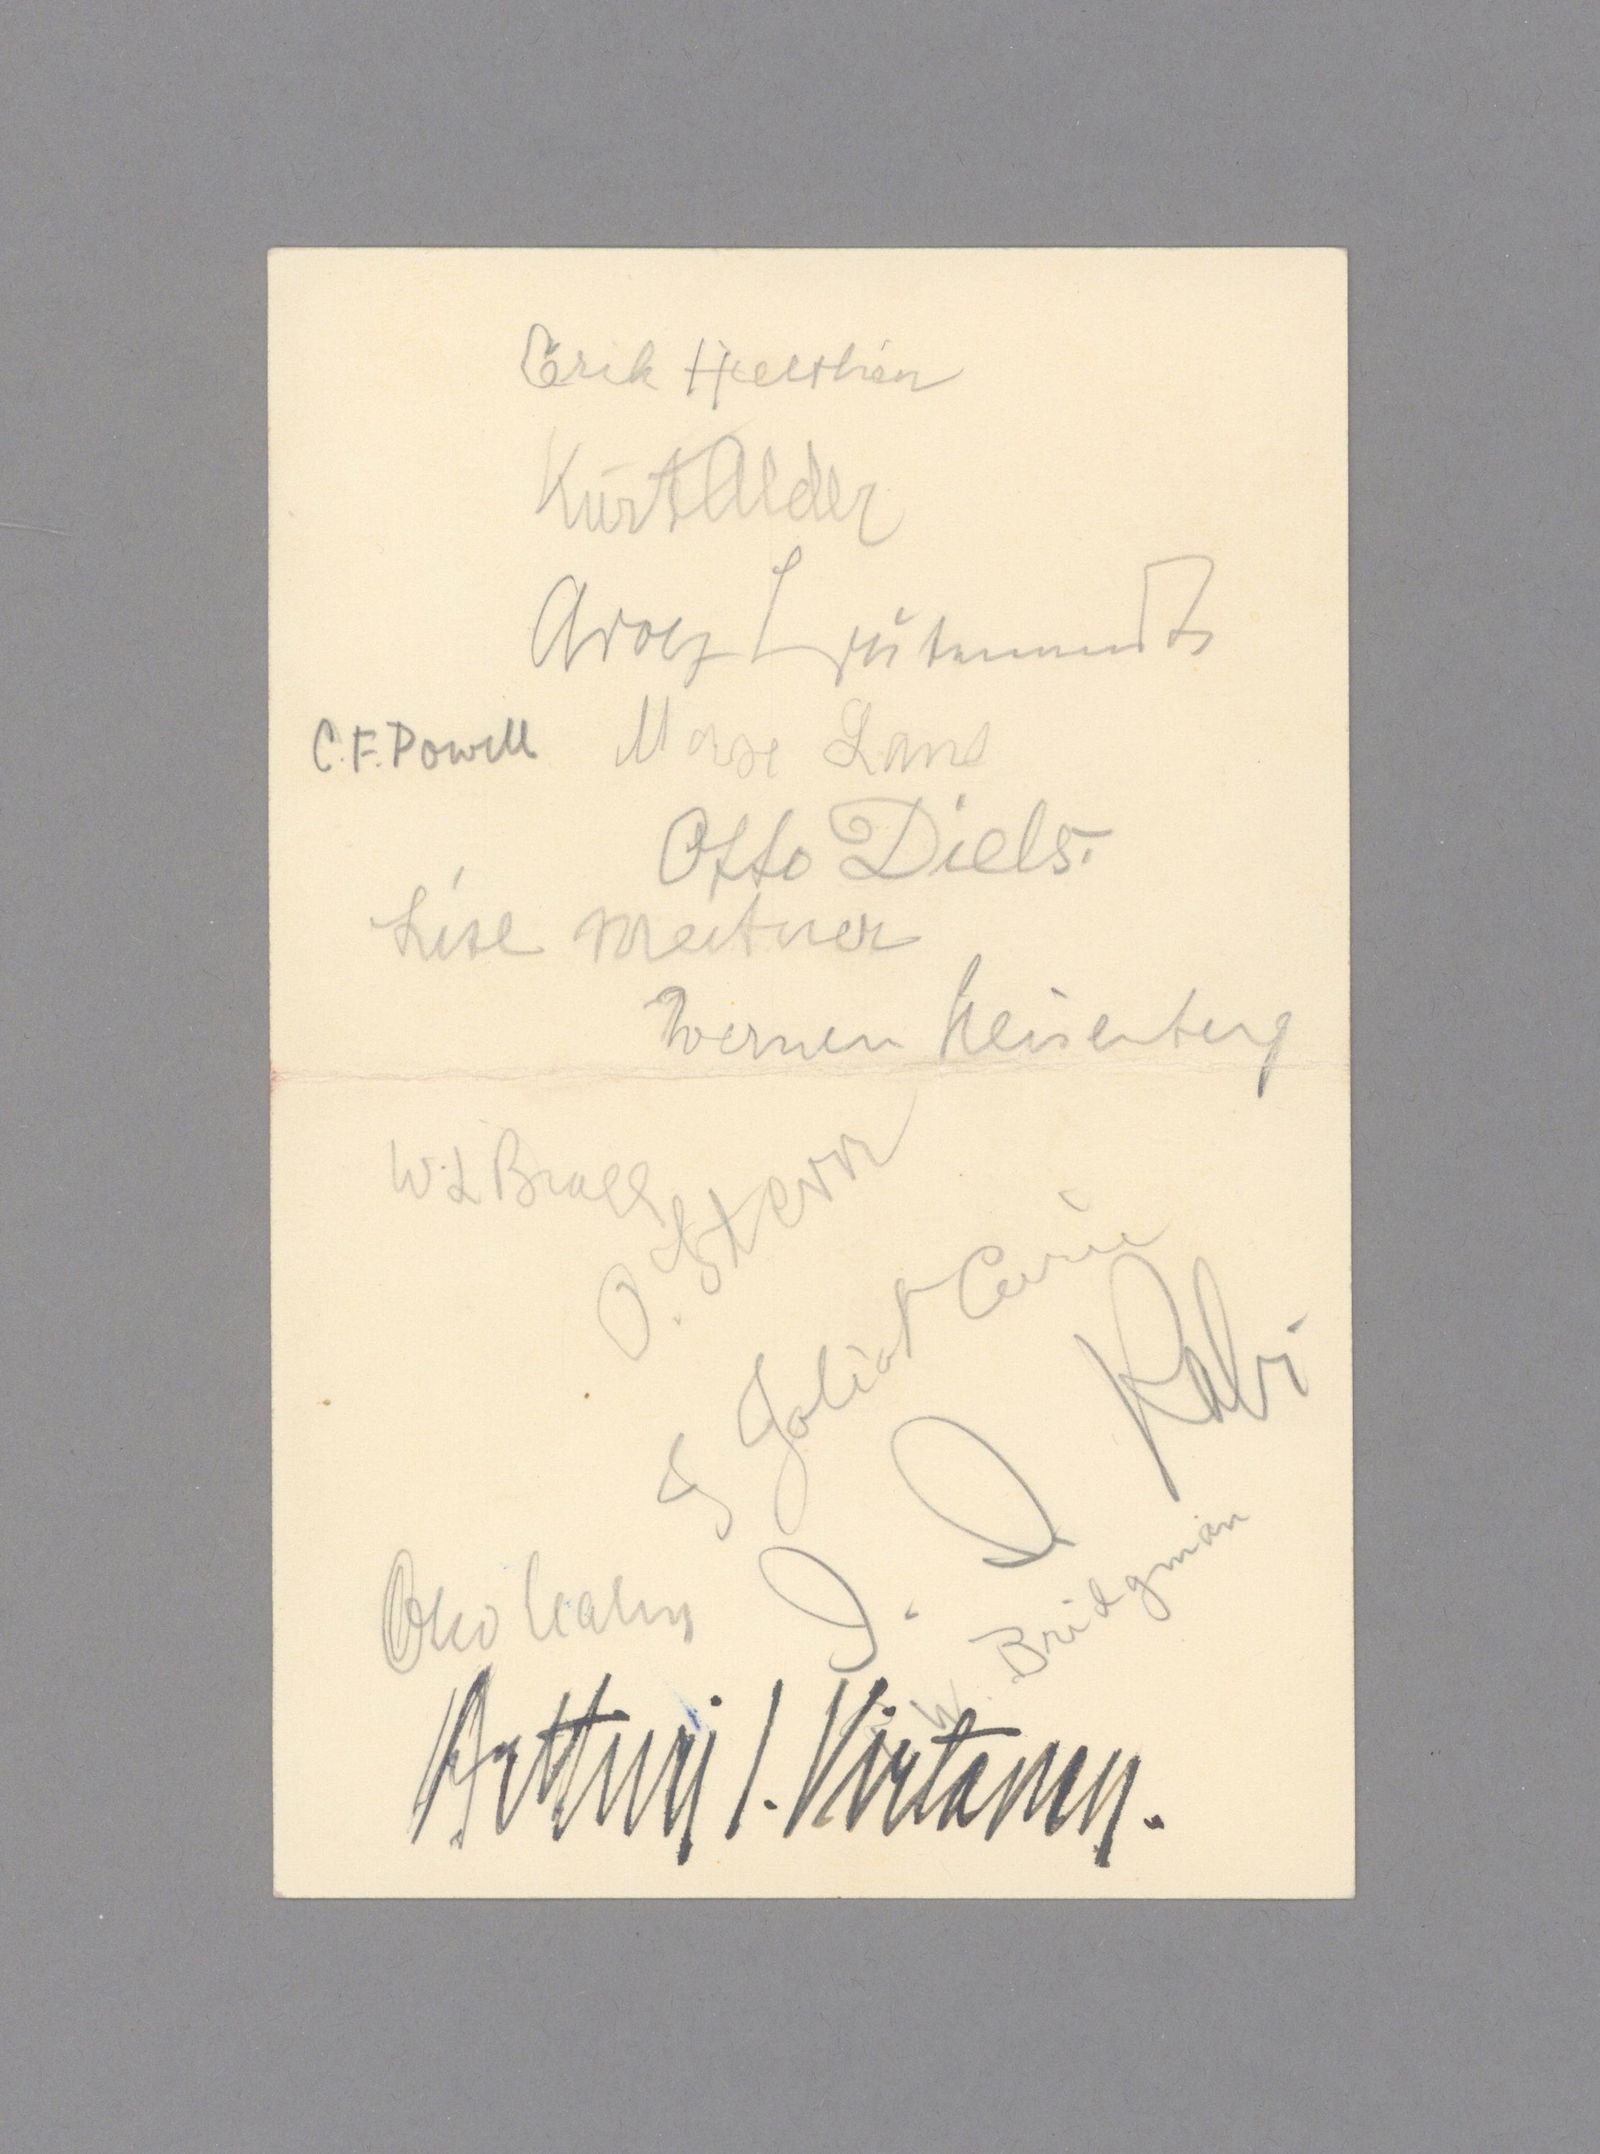 Erik Hulthén
Kurt Alder
Adolf Butenandt
C.F. Powell
Otto Diels.
Lise Meitner
Werner Heisenberg
W L Bragg
O. Stern
Joliot Curie
I. I Rabi
W. Bridgman
Otto Hahn
Artturi I. Virtanen.